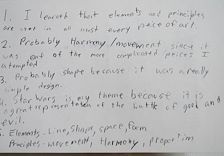 1. I learned that elements and principles
are used in all most every piece of art.
2. Probably Harmony/movement since it
was one of the more complicated pieces I
attempted
3. Probably shape because it was a really
simple design.
4. Star Wars is my theme because it is
a great representation of the battle of good and
evil.
5. Elements - Line, Shape, space, form
Principles - movement, Harmony, proportion